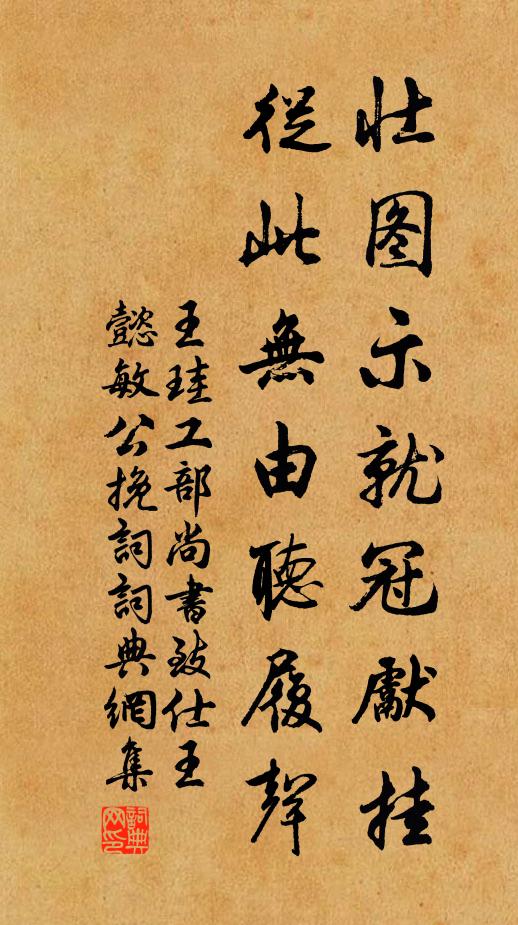 壮图示就冠獻挂
從此無由聽履聲
王珪工部尚書致仕王
懿敏公挽詞詞典網集
詞典
网印